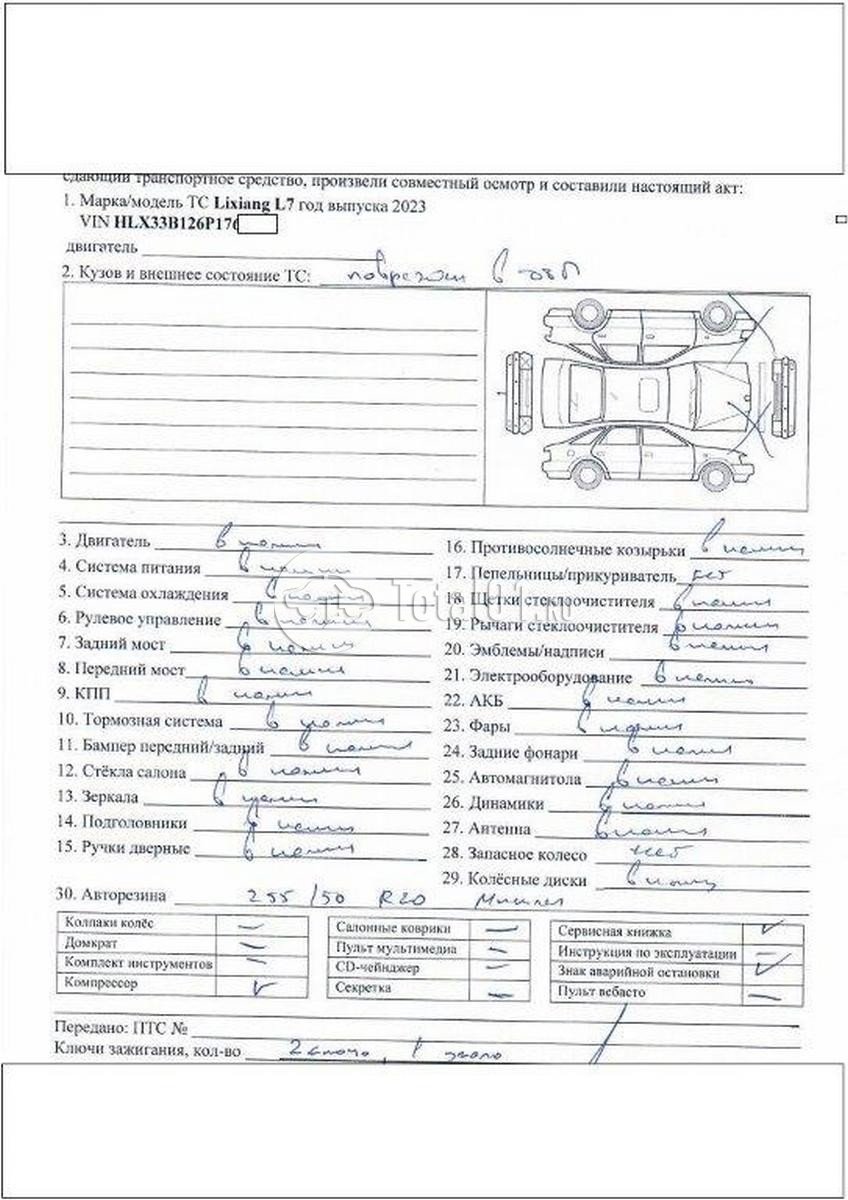 сдающий транспортное средство, произвели совместный осмотр и составили настоящий акт:
1. Марка/модель ТС Lixiang L7 год выпуска 2023
VIN HLX33B126P176
двигатель
2. Кузов и внешнее состояние ТС: поврежден в
3. Двигатель в наличии
4. Система питания в наличии
5. Система охлаждения в наличии
6. Рулевое управление в наличии
7. Задний мост в наличии
8. Передний мост в наличии
9. КПП в наличии
10. Тормозная система в наличии
11. Бампер передний/задний в наличии
12. Стёкла салона в наличии
13. Зеркала в наличии
14. Подголовники в наличии
15. Ручки дверные в наличии
16. Противосолнечные козырьки в наличии
17. Пепельницы/прикуриватель нет
18. Щетки стеклоочистителя в наличии
19. Рычаги стеклоочистителя в наличии
20. Эмблемы/надписи в наличии
21. Электрооборудование в наличии
22. АКБ в наличии
23. Фары в наличии
24. Задние фонари в наличии
25. Автомагнитола в наличии
26. Динамики в наличии
27. Антенна в наличии
28. Запасное колесо нет
29. Колёсные диски в наличии
Total01.ru
30. Авторезина 255/50 R20
Колпаки колёс –
Домкрат –
Комплект инструментов –
Компрессор ✓
Салонные коврики –
Пульт мультимедиа –
CD-чейнджер –
Секретка –
Сервисная книжка ✓
Инструкция по эксплуатации –
Знак аварийной остановки ✓
Пульт вебасто –
Передано: ПТС №
Ключи зажигания, кол-во 2 ключа, 1